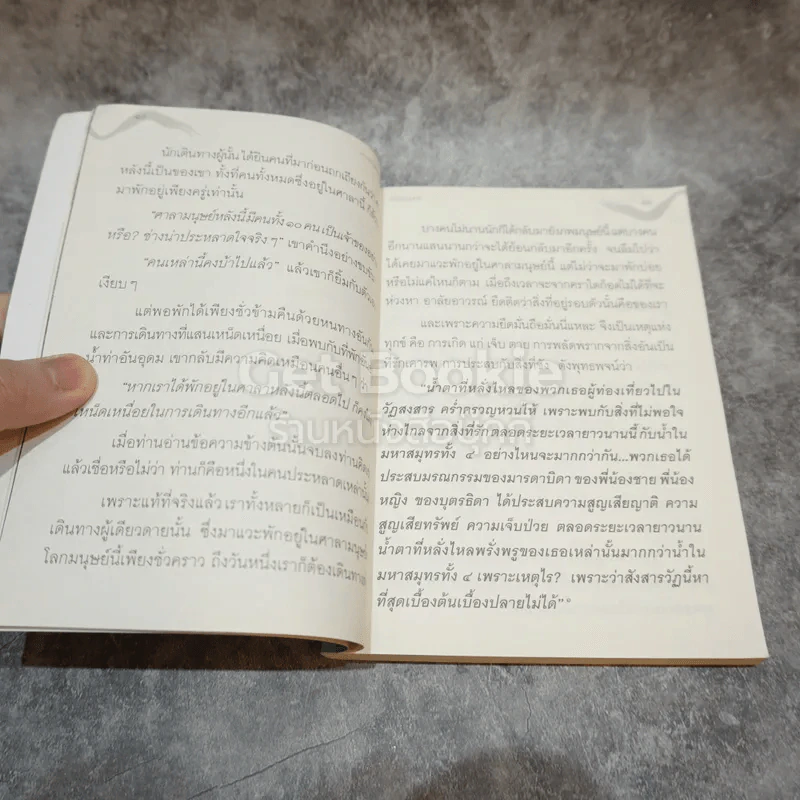 นักเดินทางผู้นั้น ได้ยินคนที่มาก่อนถกเถียงกันว่า
หลังนี้เป็นของเขา ทั้งที่คนทั้งหมดซึ่งอยู่ในศาลานี้
มาพักอยู่เพียงครู่เท่านั้น
“ศาลามนุษย์หลังนี้มีคนทั้ง ๑๐ คน เป็นเจ้าของ
หรือ? ช่างน่าประหลาดใจจริง ๆ” เขาคำนึงอย่าง
“คนเหล่านี้คงบ้าไปแล้ว” แล้วเขาก็ยิ้มกับตัวเอง
เงียบ ๆ
แต่พอพักได้เพียงชั่วข้ามคืนด้วยหนทางอัน
และการเดินทางที่แสนเหน็ดเหนื่อย เมื่อพบกับที่พัก
น้ำท่าอันอุดม เขากลับมีความคิดเหมือนคนอื่นๆ
“หากเราได้พักอยู่ในศาลาหลังนี้ตลอดไป ก็คง
เหน็ดเหนื่อยในการเดินทางอีกแล้ว
เมื่อท่านอ่านข้อความข้างต้นนั้นจบลง ท่าน
แล้วเชื่อหรือไม่ว่า ท่านก็คือหนึ่งในคนประหลาดเหล่านั้น
เพราะแท้ที่จริงแล้ว เราทั้งหลายก็เป็นเหมือน
เดินทางผู้เดียวดายนั้น ซึ่งมาแวะพักอยู่ในศาลามนุษย์
โลกมนุษย์นี้เพียงชั่วคราว ถึงวันหนึ่งเราก็ต้องเดินทาง
บางคนไม่นานนักก็ได้กลับมายังภพมนุษย์นี้ แต่บางคน
อีกนานแสนนานกว่าจะได้ย้อนกลับมาอีกครั้ง จนลืมไปว่า
ได้เคยมาแวะพักอยู่ในศาลามนุษย์นี้ แต่ไม่ว่าจะมาพักบ่อย
หรือไม่แค่ไหนก็ตาม เมื่อถึงเวลาจะจากคราใดก็อดไม่ได้ที่จะ
ห่วงหา อาลัยอาวรณ์ ยึดติดว่าสิ่งที่อยู่รอบตัวนั้นคือของเรา
และเพราะความยึดมั่นถือมั่นนี่แหละ จึงเป็นเหตุแห่ง
ทุกข์ คือ การเกิด แก่ เจ็บ ตาย การพลัดพรากจากสิ่งอันเป็น
ที่รักเคารพ การประสบกับสิ่งที่ชัง ดังพุทธพจน์ว่า
“น้ำตาที่หลั่งไหลของพวกเธอผู้ท่องเที่ยวไปใน
วัฏสงสาร คร่ำครวญหวนไห้ เพราะพบกับสิ่งที่ไม่พอใจ
ห่างไกลจากสิ่งที่รัก ตลอดระยะเวลายาวนานนี้ กับน้ำใน
มหาสมุทรทั้ง ๔ อย่างไหนจะมากกว่ากัน...พวกเธอได้
ประสบมรณกรรมของมารดาบิดา ของพี่น้องชาย พี่น้อง
หญิง ของบุตรธิดา ได้ประสบความสูญเสียญาติ ความ
สูญเสียทรัพย์ ความเจ็บป่วย ตลอดระยะเวลายาวนาน
น้ำตาที่หลั่งไหลพรั่งพรูของเธอเหล่านั้นมากกว่าน้ำใน
มหาสมุทรทั้ง ๔ เพราะเหตุไร? เพราะว่าสังสารวัฏนี้หา
ที่สุดเบื้องต้นเบื้องปลายไม่ได้”
Get Bookie